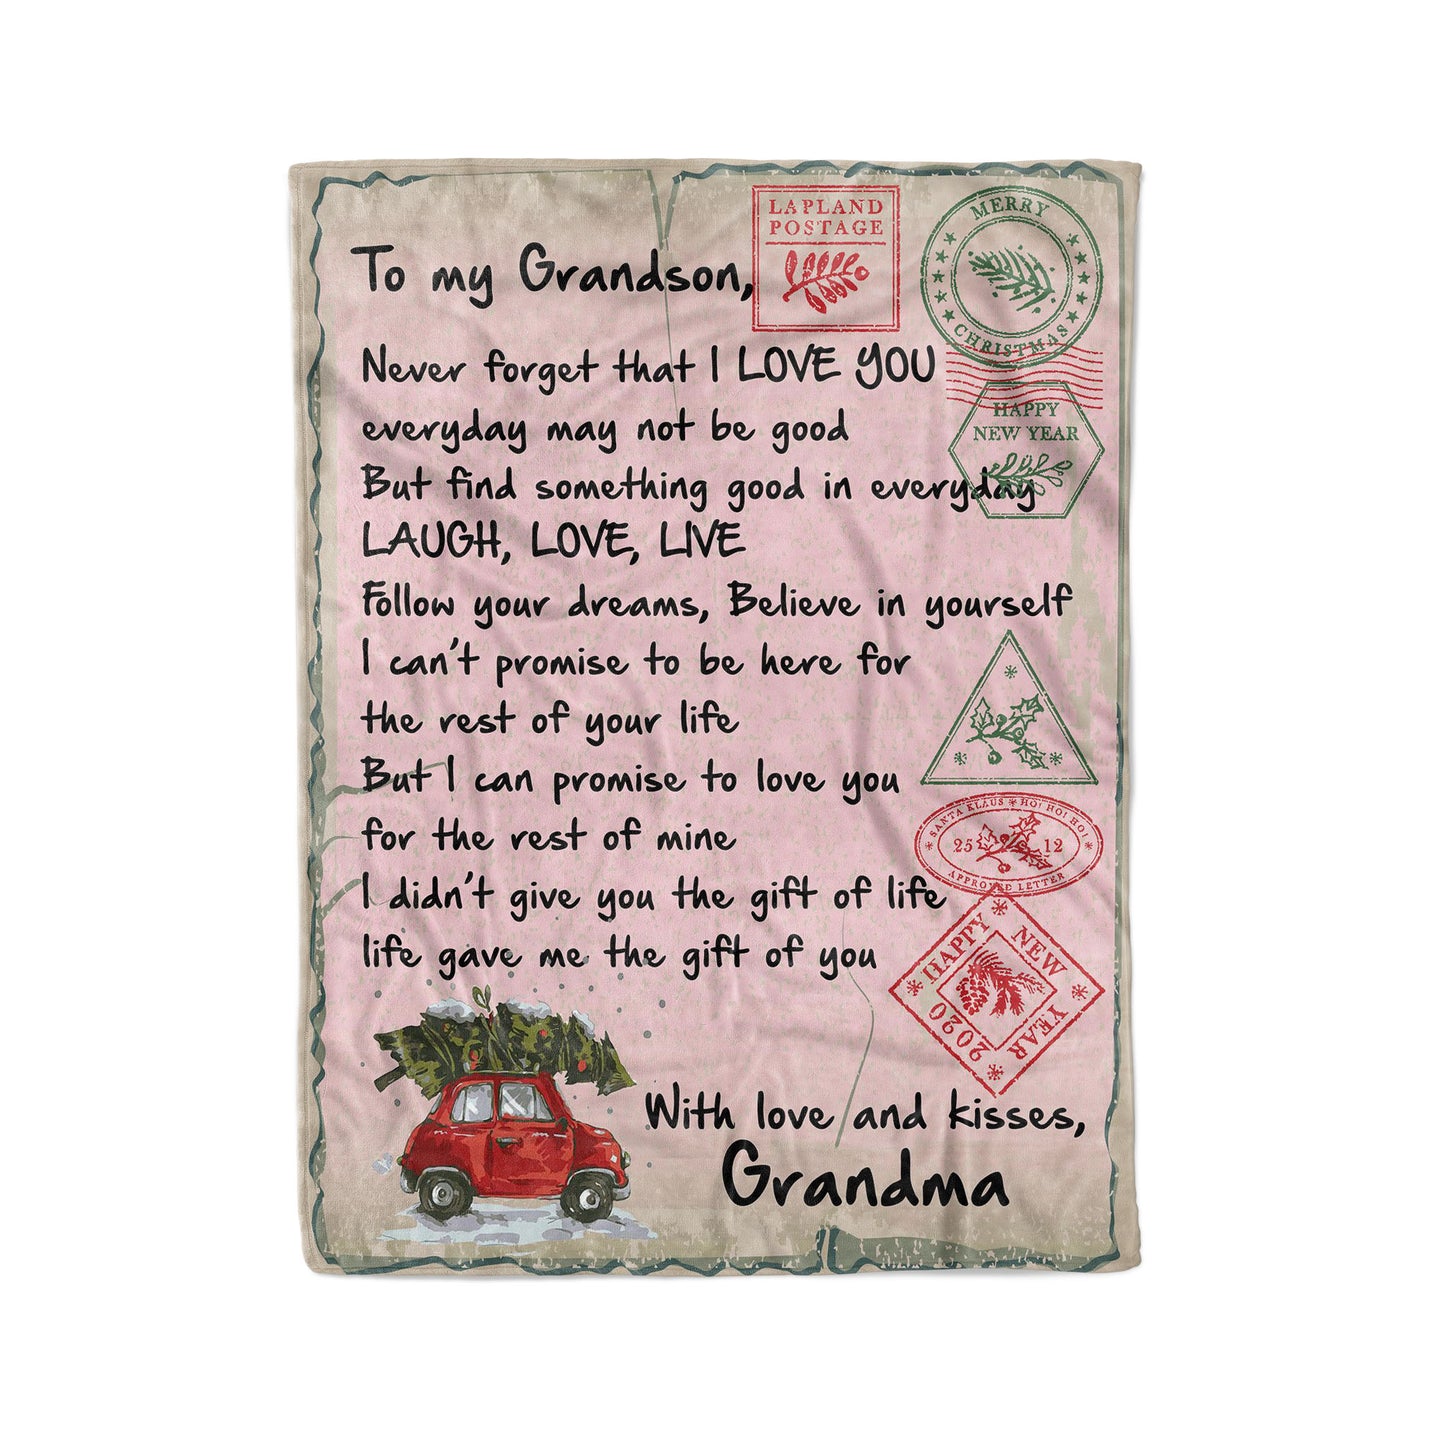 LAPLAND
POSTAGE
MERRY
CHRISTMAS
To my Grandson,
Never forget that I LOVE YOU
HAPPY
NEW YEAR
everyday may not be good
But find something good in everyday
LAUGH, LOVE, LIVE
Follow your dreams, Believe in yourself
I can't promise to be here for
the rest of your life
But I can promise to love you
for the rest of mine
SANTA KLAUS * HO! HO! HO!
25 12
APPROVED LETTER
I didn't give you the gift of life
life gave me the gift of you
HAPPY
NEW
YEAR
2020
With love and kisses,
Grandma